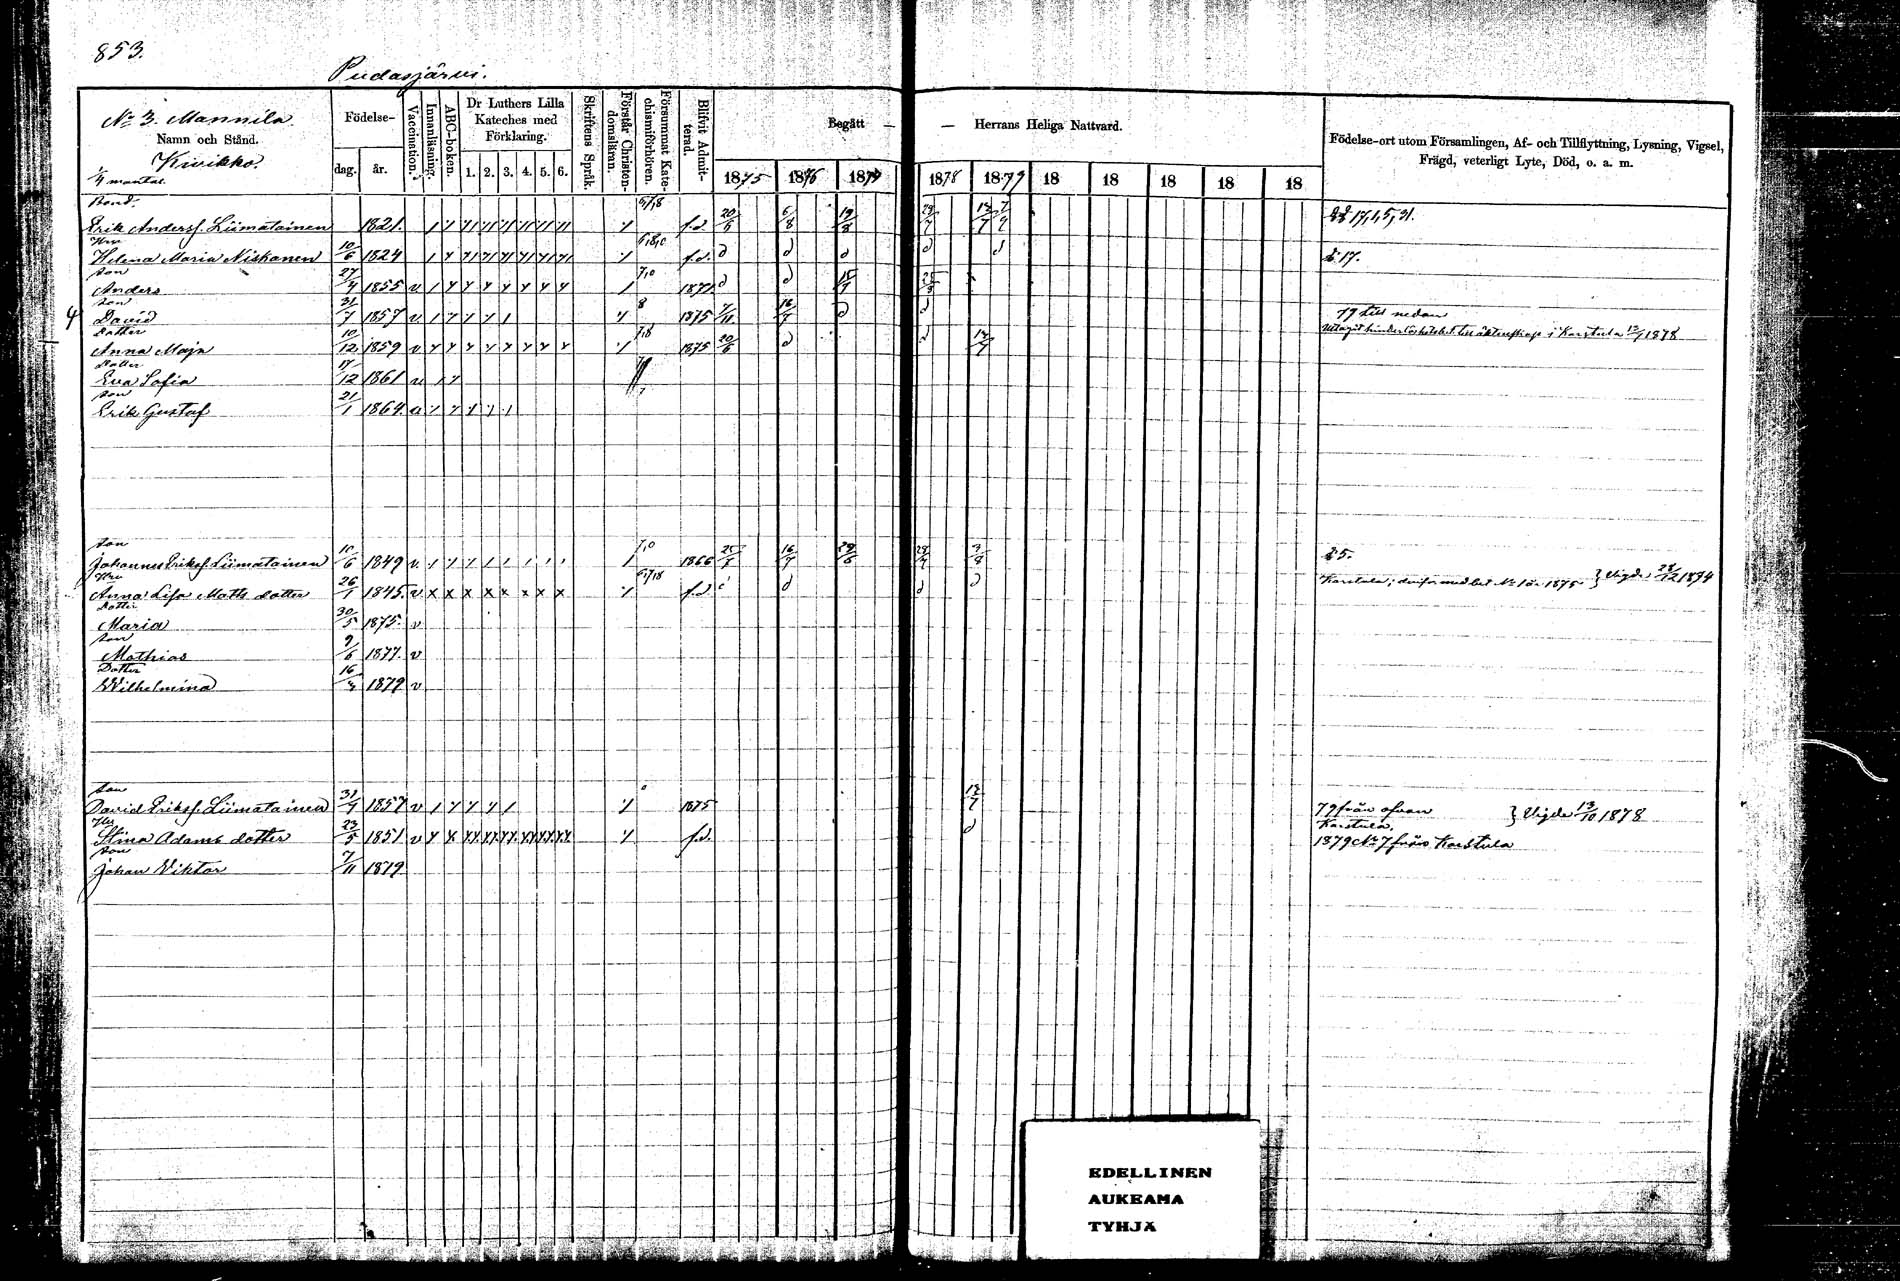 853.
Pudasjärvi.
No 3. Mannila.
Namn och Stånd.
Kivikko.
1/4 mantal.
Födelse-
dag. år.
Vaccination.
Innanläsning.
ABC-boken.
Dr Luthers Lilla Kateches med Förklaring.
1. 2. 3. 4. 5. 6.
Skriftens Språk.
Förstår Christendomsläran.
Försummat Katechismiförhören.
Blifvit Admitterad.
Begått — — Herrans Heliga Nattvard.
1875 1876 1877 1878 1879 18 18 18 18 18
Födelse-ort utom Församlingen, Af- och Tillflyttning, Lysning, Vigsel, Frägd, veterligt Lyte, Död, o. a. m.
Bond.
Erik Andersf. Liimatainen 1821. f.d. 20/6 6/8 19/8
Hru
Helena Maria Niskanen 10/6 1824 f.d. d d d d d § 17.
son
Anders 27/4 1855 v 7,0 1871 d d
son
David 31/7 1857 v. 8 1875 7/11 16/7 d d 79 till nedan
Dotter
Anna Maja 10/12 1859 v 7,8 1875 20/6 d d Uttagit hinderlöshetsbet till äktenskap i Karstula 13/7 1878
Dotter
Eva Sofia 17/12 1861 v
son
Erik Gustaf 21/1 1864.
son
Johannes Eriksf. Liimatainen 10/6 1849 v. 7,0 1866 16/7 § 5.
Hru
Anna Lisa Matts dotter 26/1 1845. v x x x x x x x x f.d. d d d Karstula; 1875 } Vigde 28/12 1874
Dotter
Maria 30/5 1875. v
son
Mathias 9/6 1877. v
Dotter
Wilhelmina 1879 v
son
David Eriksf. Liimatainen 31/7 1857 v 1875 79 från ofvan } Vigde 13/10 1878
Hru
Stina Adams dotter 23/5 1851. v f.d. d Karstula.
1879 No 7 från Karstula
son
Johan Viktor 7/11 1879
EDELLINEN
AUKEAMA
TYHJÄ